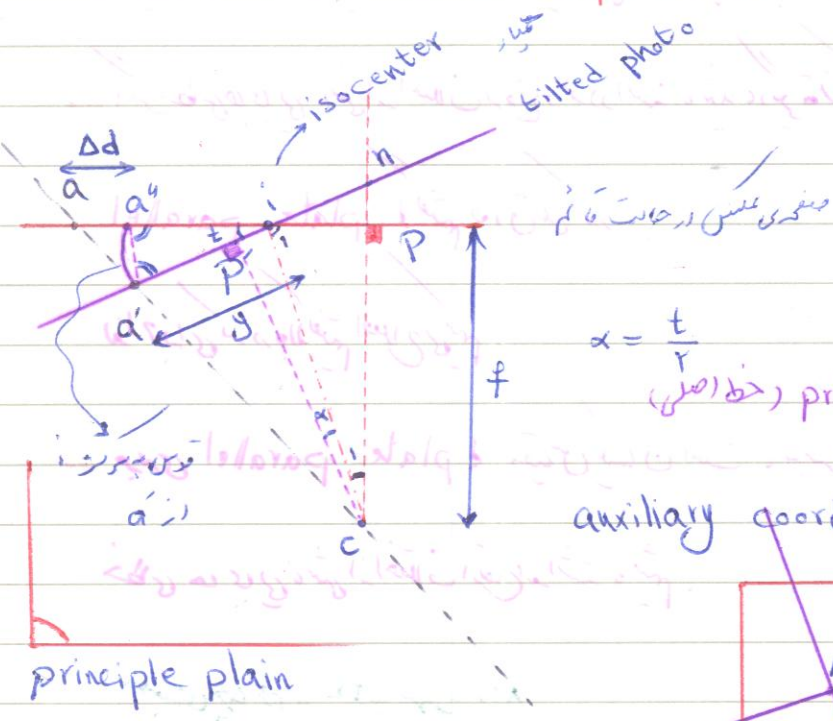 isocenter
tilted photo
Δd
a
a"
i
n
t
P
P'
صفحه‌ی عکس در حالت قائم
a'
y
f
α = t/۲
(خط اصلی) pr
α
قوس به مرکز i
از a'
c
auxiliary coor
principle plain